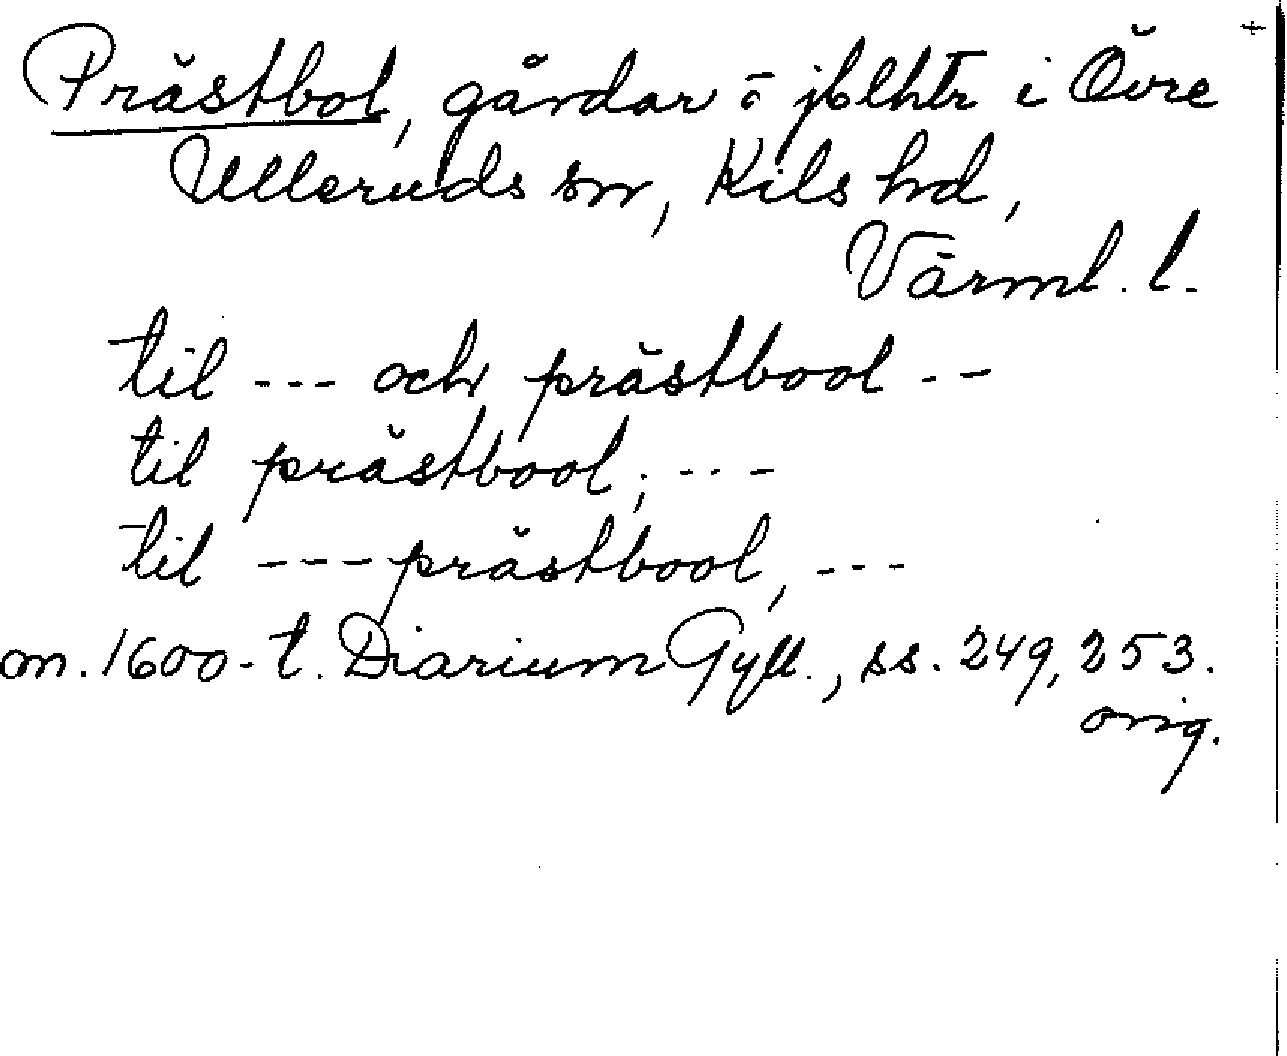 Prästbol, gårdar o jblhtr i Övre
Ulleruds sn, Kils hd,
Värml. l.
til --- och prästbool --
til prästbool; ---
til --- prästbool, ---
on. 1600-t. Diarium Gyll., ss. 249, 253.
orig.